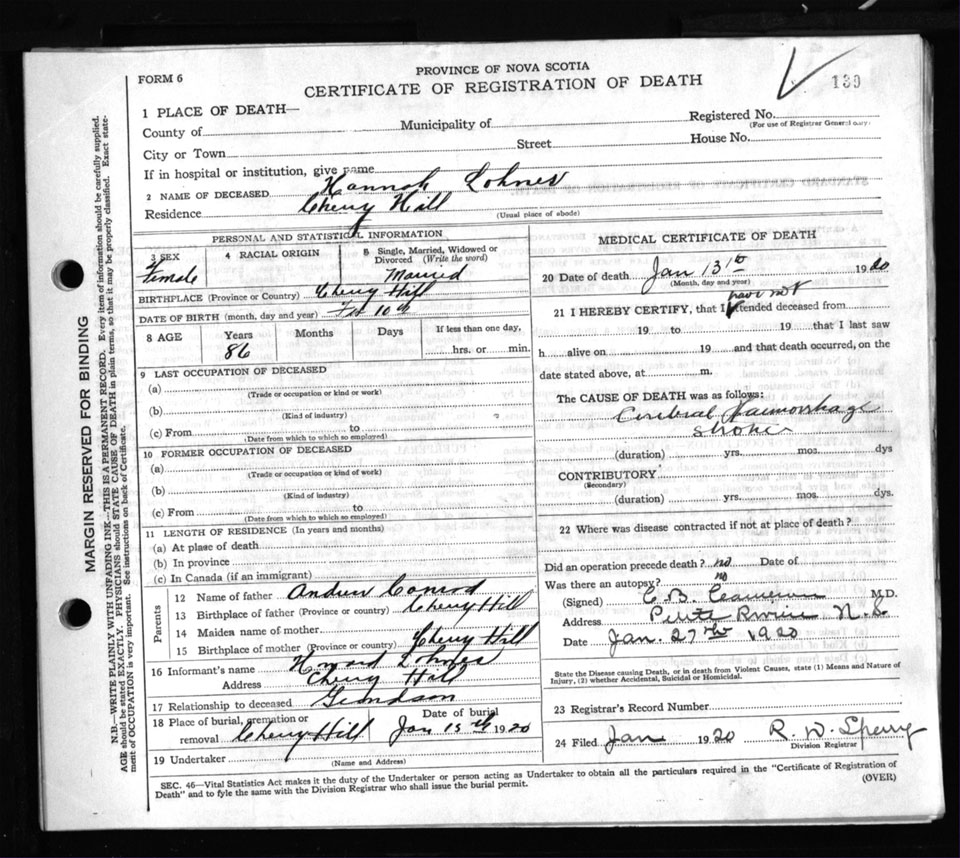 FORM 6
PROVINCE OF NOVA SCOTIA
CERTIFICATE OF REGISTRATION OF DEATH
139
1 PLACE OF DEATH—
County of
Municipality of
Registered No.
(For use of Registrar General only.)
City or Town
Street
House No.
If in hospital or institution, give name
2 NAME OF DECEASED Hannah Lohnes
Residence Cherry Hill
(Usual place of abode)
PERSONAL AND STATISTICAL INFORMATION
3 SEX Female
4 RACIAL ORIGIN
5 Single, Married, Widowed or Divorced (Write the word) Married
BIRTHPLACE (Province or Country) Cherry Hill
DATE OF BIRTH (month, day and year) Feb 10th
8 AGE
Years 86
Months
Days
If less than one day, hrs. or min.
9 LAST OCCUPATION OF DECEASED
(a)
(Trade or occupation or kind or work)
(b)
(Kind of industry)
(c) From to
(Date from which to which so employed)
10 FORMER OCCUPATION OF DECEASED
(a)
(Trade or occupation or kind of work)
(b)
(Kind of industry)
(c) From to
(Date from which to which so employed)
11 LENGTH OF RESIDENCE (In years and months)
(a) At place of death
(b) In province
(c) In Canada (if an immigrant)
Parents
12 Name of father Andrew Conrad
13 Birthplace of father (Province or country) Cherry Hill
14 Maiden name of mother
15 Birthplace of mother (Province or country) Cherry Hill
16 Informant's name Howard Lohnes
Address Cherry Hill
17 Relationship to deceased Grandson
18 Place of burial, cremation or removal Cherry Hill
Date of burial Jan 15th 1920
19 Undertaker
(Name and Address)
MEDICAL CERTIFICATE OF DEATH
20 Date of death Jan 13th 1920
(Month, day and year)
have not
21 I HEREBY CERTIFY, that I attended deceased from
19 to 19 that I last saw
h alive on 19 and that death occurred, on the
date stated above, at m.
The CAUSE OF DEATH was as follows:
Cerebral Haemorrhage
stroke
(duration) yrs. mos. dys
CONTRIBUTORY
(Secondary)
(duration) yrs. mos. dys.
22 Where was disease contracted if not at place of death?
Did an operation precede death? no Date of
Was there an autopsy? no
(Signed) C. B. Cameron M.D.
Address Petite Riviere N.S.
Date Jan. 27th 1920
State the Disease causing Death, or in death from Violent Causes, state (1) Means and Nature of
Injury, (2) whether Accidental, Suicidal or Homicidal.
23 Registrar's Record Number
24 Filed Jan 1920 R. W. Sperry
Division Registrar
SEC. 46—Vital Statistics Act makes it the duty of the Undertaker or person acting as Undertaker to obtain all the particulars required in the "Certificate of Registration of
Death" and to fyle the same with the Division Registrar who shall issue the burial permit.
(OVER)
MARGIN RESERVED FOR BINDING
N.B.—WRITE PLAINLY WITH UNFADING INK—THIS IS A PERMANENT RECORD. Every item of information should be carefully supplied.
AGE should be stated EXACTLY. PHYSICIANS should STATE CAUSE OF DEATH in plain terms, so that it may be properly classified. Exact state-
ment of OCCUPATION is very important. See instructions on back of Certificate.